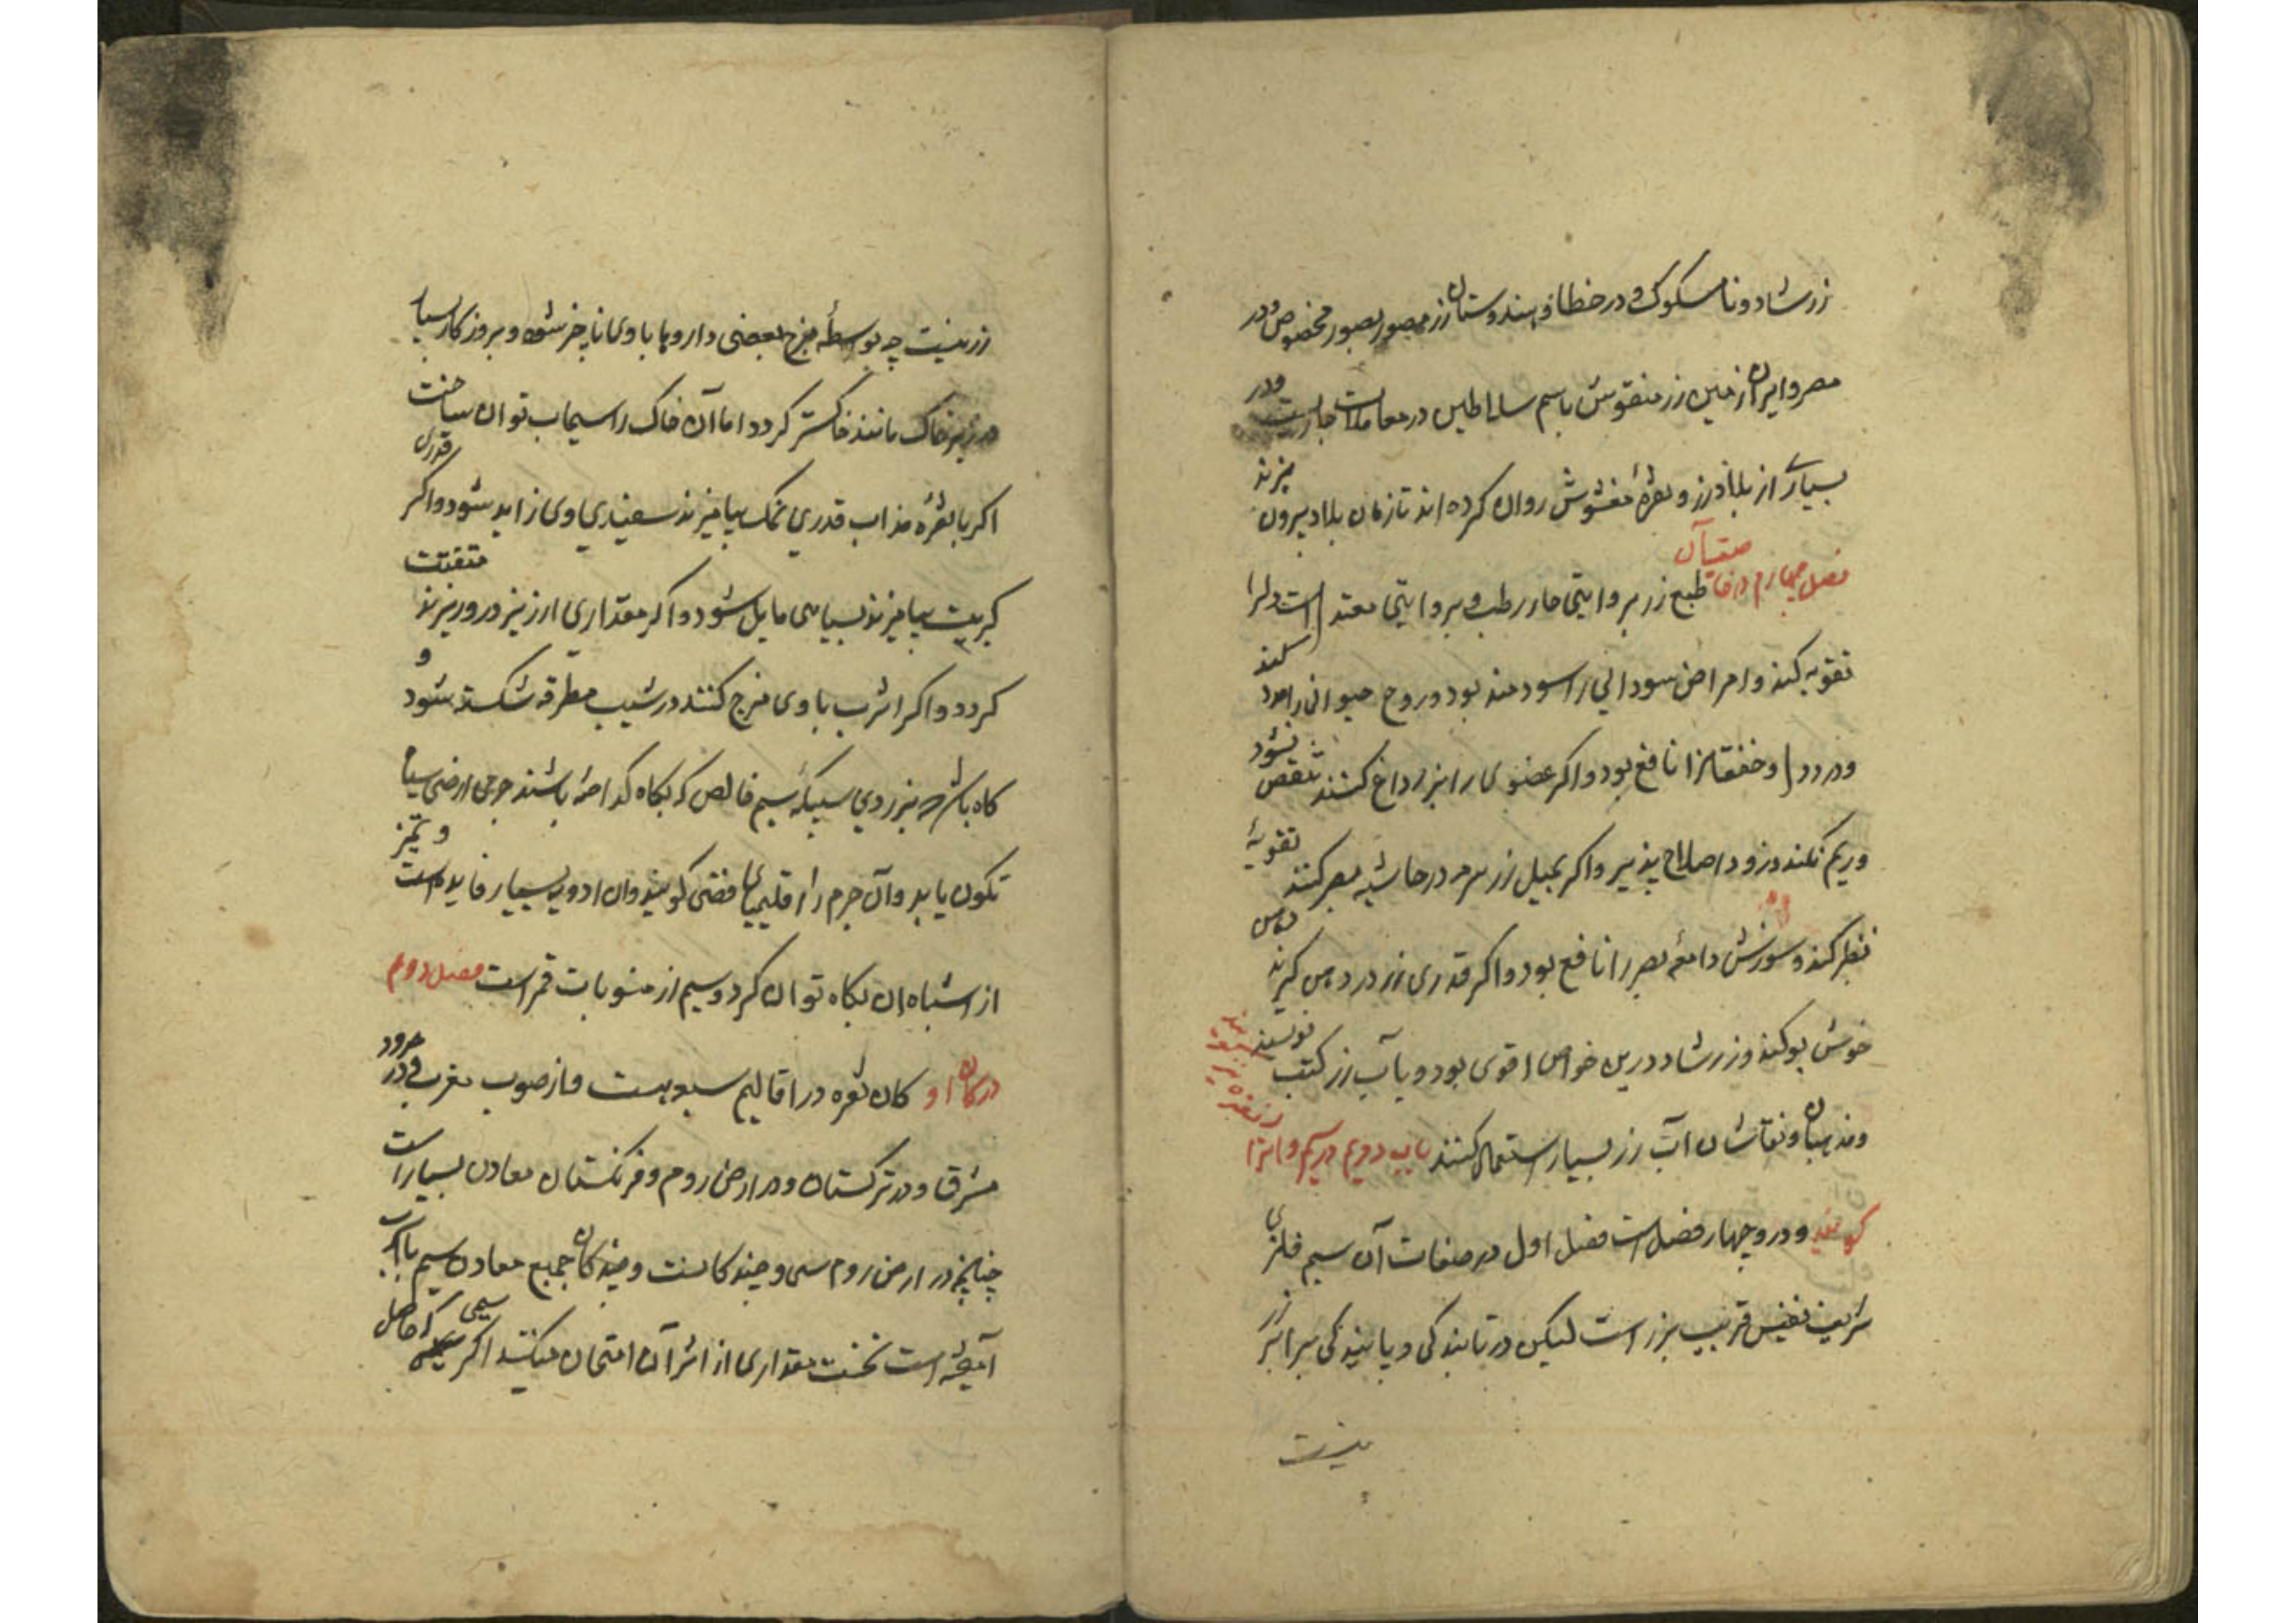 زر شاد و نامسکوک و در خطا و هندوستان زر مصور بصور مخصوص و در
مصر و ایران زمین زر منقوش باسم سلاطین در معاملات جاریست و در
بسیاری از بلاد زر و نقرهٔ مغشوش روان کرده اند تا زکان بلاد بیرون نبرند
فصل چهارم در خاصیّات آن طبع زر بروایتی حار رطب و بروایتی معتدل است دلرا
تقویه کند و امراض سودایی را سودمند بود و روح حیوانی را مدد کند
و درد دل و خفقانرا نافع بود و اکر عضوی را بزر داغ کنند متنقص نشود
و ریم نکند و زود اصلاح پذیر و اکر بمیل زر سرمه در حاشیه بصر کنند تقویهٔ
نظر کند و سوزش دامعهٔ بصر را نافع بود و اکر قدری زر در دهن کیرند دهن
خوش بو کند و زر شاد درین خواص اقوی بود و بآب زر کتب نویسند
و مذهبان و نقاشان آب زر بسیار استعمال کنند باب دویم در سیم و آنرا نقره نیز
کویند و درو چهار فصل است فصل اول در صفات آن سیم فلزی
شریف نفیس قریب بزر است لیکن در تابندکی و پایندکی برابر زر
نیست
زر نیست چه بوسطهٔ مزج بعضی داروها با وی ناچیز شود و بروزکار بسیار
در زیر خاک مانند خاکستر کردد اما آن خاک را سیماب توان ساخت
اکر با نقرهٔ مذاب قدری نمک بیامیزند سفیدی وی زاید شود و اکر قدری
کبریت بیامیزند بسیاهی مایل شود و اکر مقداری ارزیز درو ریزند متفتت
کردد و اکر اشرب با وی مزج کنند در شیب مطرقه شکسته شود و
کاه باشد که بر روی سبیکهٔ سیم خالص که بکاه کداخته باشند جرمی ارضی سیاه
تکون یابد و آن جرم را اقلیمیای فضی کویند و ان ادویه بسیار فایده است و تمیز
از اشباه ان بکاه توان کرد و سیم از منسوبات قمر است فصل دوم
در کان او کان نقره در اقالیم سبعه هست و از صوب مغرب و در حدود
مشرق و در ترکستان و در ارض روم و فرنکستان معادن بسیار است
چنانچه در ارض روم سی و چند کانست و چند کان جمیع معادن سیم باسرب
آمیخته است نخست مقداری از اثر آن امتحان میکنند اکر سیمی که حاصل